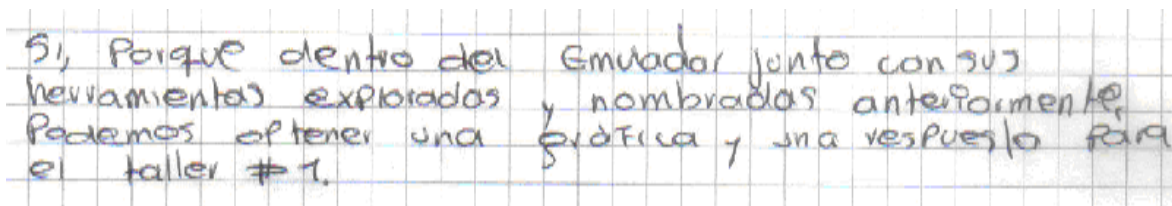 Si, Porque dentro del Emulador junto con sus
herramientas exploradas y nombradas anteriormente,
Podemos optener una gráfica y una respuesta para
el taller #1.